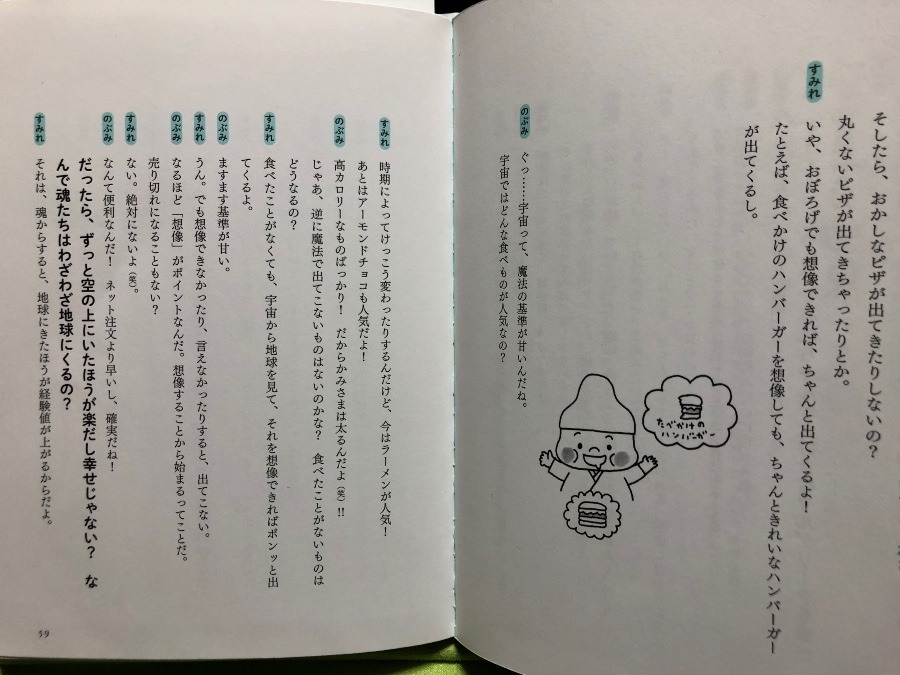 そしたら、おかしなピザが出てきたりしないの？
丸くないピザが出てきちゃったりとか。
すみれ
いや、おぼろげでも想像できれば、ちゃんと出てくるよ！
たとえば、食べかけのハンバーガーを想像しても、ちゃんときれいなハンバーガー
が出てくるし。
たべかけの
ハンバーガー
のぶみ
ぐっ……宇宙って、魔法の基準が甘いんだね。
宇宙ではどんな食べものが人気なの？
すみれ
時期によってけっこう変わったりするんだけど、今はラーメンが人気！
あとはアーモンドチョコも人気だよ！
のぶみ
高カロリーなものばっかり！　だからかみさまは太るんだよ（笑）!!
じゃあ、逆に魔法で出てこないものはないのかな？　食べたことがないものは
どうなるの？
すみれ
食べたことがなくても、宇宙から地球を見て、それを想像できればポンッと出
てくるよ。
のぶみ
ますます基準が甘い。
すみれ
うん。でも想像できなかったり、言えなかったりすると、出てこない。
のぶみ
なるほど「想像」がポイントなんだ。想像することから始まるってことだ。
売り切れになることもない？
すみれ
ない。絶対にないよ（笑）。
のぶみ
なんて便利なんだ！　ネット注文より早いし、確実だね！
だったら、ずっと空の上にいたほうが楽だし幸せじゃない？　な
んで魂たちはわざわざ地球にくるの？
すみれ
それは、魂からすると、地球にきたほうが経験値が上がるからだよ。
59